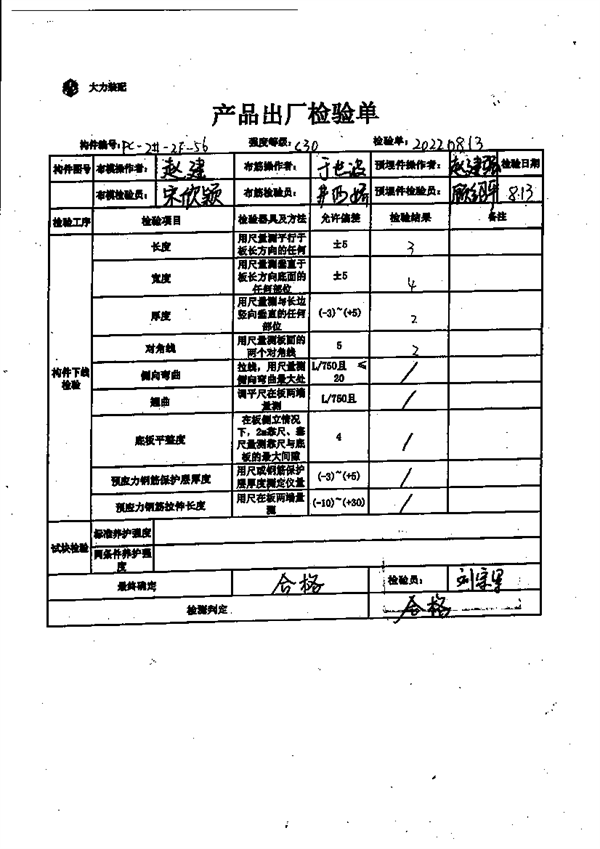 大力装配
产品出厂检验单
构件编号: PC-2#-2F-56 强度等级: C30 检验单: 20220813
构件图号 布模操作者: 赵建 布筋操作者: 预埋件操作者: 赵建强 检验日期
布模检验员: 宋欣颖 布筋检验员: 预埋件检验员: 8.13
检验工序 检验项目 检验器具及方法 允许偏差 检验结果 备注
构件下线检验
长度 用尺量测平行于板长方向的任何 ±5 3
宽度 用尺量测垂直于板长方向底面的任何部位 ±5 4
厚度 用尺量测与长边竖向垂直的任何部位 (-3)~(+5) 2
对角线 用尺量测板面的两个对角线 5 2
侧向弯曲 拉线，用尺量测侧向弯曲最大处 L/750且 ≤20 /
翘曲 调平尺在板两端量测 L/750且 /
底板平整度 在板侧立情况下，2m靠尺、塞尺量测靠尺与底板的最大间隙 4 /
预应力钢筋保护层厚度 用尺或钢筋保护层厚度测定仪量 (-3)~(+5) /
预应力钢筋拉伸长度 用尺在板两端量测 (-10)~(+30) /
试块检验 标准养护强度
同条件养护强度
最终确定 合格 检验员:
检测判定 合格